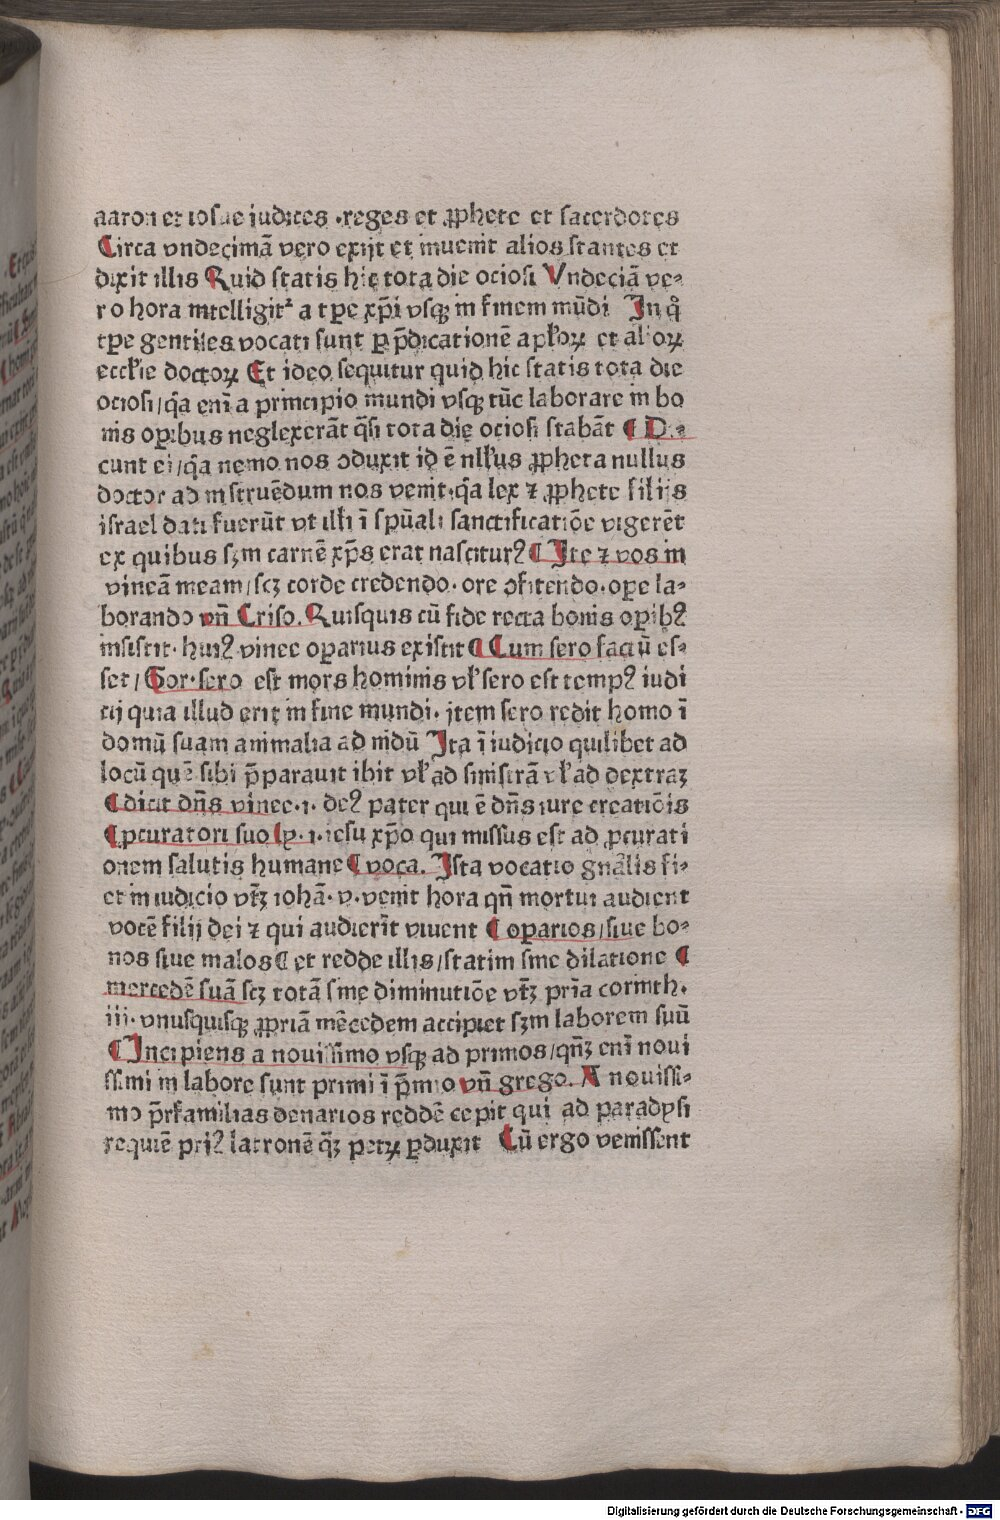 aaron et iosue iudices .reges et ꝓphete et sacerdotes
Circa vndecimā vero exijt et inuenit alios stantes et
dixit illis Quid statis hic tota die ociosi Vndeciā ve⸗
ro hora intelligit̉ a tꝑe xp̄i vsqꝫ in finem mūdi In q̊
tꝑe gentiles vocati sunt ꝑ p̄dicationē apl'oꝝ et alioꝝ
eccl'ie doctoꝝ Et ideo sequitur quid hic statis tota die
ociosi/q̄a enī a principio mundi vsqꝫ tūc laborare in bo
nis oꝑibus neglexerāt q̄si tota die ociosi stabāt ¶ Di⸗
cunt ei/q̄a nemo nos ꝯduxit id ē nll'us ꝓpheta nullus
doctor ad instruēdum nos venit.q̄a lex ⁊ ꝓphete filijs
israel dati fuerūt vt ill'i ī spūali sanctificatiōe vigerēt
ex quibus sꝫm carnē xp̄s erat nascitur⁹ ¶ Ite ⁊ vos in
vineā meam/scꝫ corde credendo. ore ꝯfitendo. oꝑe la⸗
borando vn̄ Criso. Quisquis cū fide recta bonis oꝑib⁹
insistit. hui⁹ vinee oꝑarius existit ¶ Cum sero factū es⸗
set/ Gor.sero est mors hominis vl' sero est temp⁹ iudi
cij quia illud erit in fine mundi. jtem sero redit homo ī
domū suam animalia ad nidū Ita ī iudicio quilibet ad
locū quē sibi p̄parauit ibit vl' ad sinistrā vl' ad dextraꝫ
¶ dicit dn̄s vinee.i. de⁹ pater qui ē dn̄s iure creatiōis
¶ ꝓcuratori suo .i.iesu xp̄o qui missus est ad ꝓcurati
onem salutis humane ¶ voca. Ista vocatio gn̄alis fi⸗
et in iudicio vt̄ꝫ iohā. v. venit hora qn̄ mortui audient
vocē filij dei ⁊ qui audierīt viuent ¶ oꝑarios/siue bo⸗
nos siue malos ¶ et redde illis/statim sine dilatione ¶
mercedē suā scꝫ totā sine diminutiōe vt̄ꝫ prīa corinth.
iii. vnusquisqꝫ ꝓpriā mēcedem accipiet sꝫm laborem suū
¶ Incipiens a nouissimo vsqꝫ ad primos/qn̄ꝫ enī noui
ssimi in labore sunt primi ī p̄mio vn̄ grego. A nouissi⸗
mo p̄rfamilias denarios reddē cepit qui ad paradysi
requiē pri⁹ latronē q̄ꝫ petꝝ ꝑduxit Cū ergo venissent
Digitalisierung gefördert durch die Deutsche Forschungsgemeinschaft - DFG